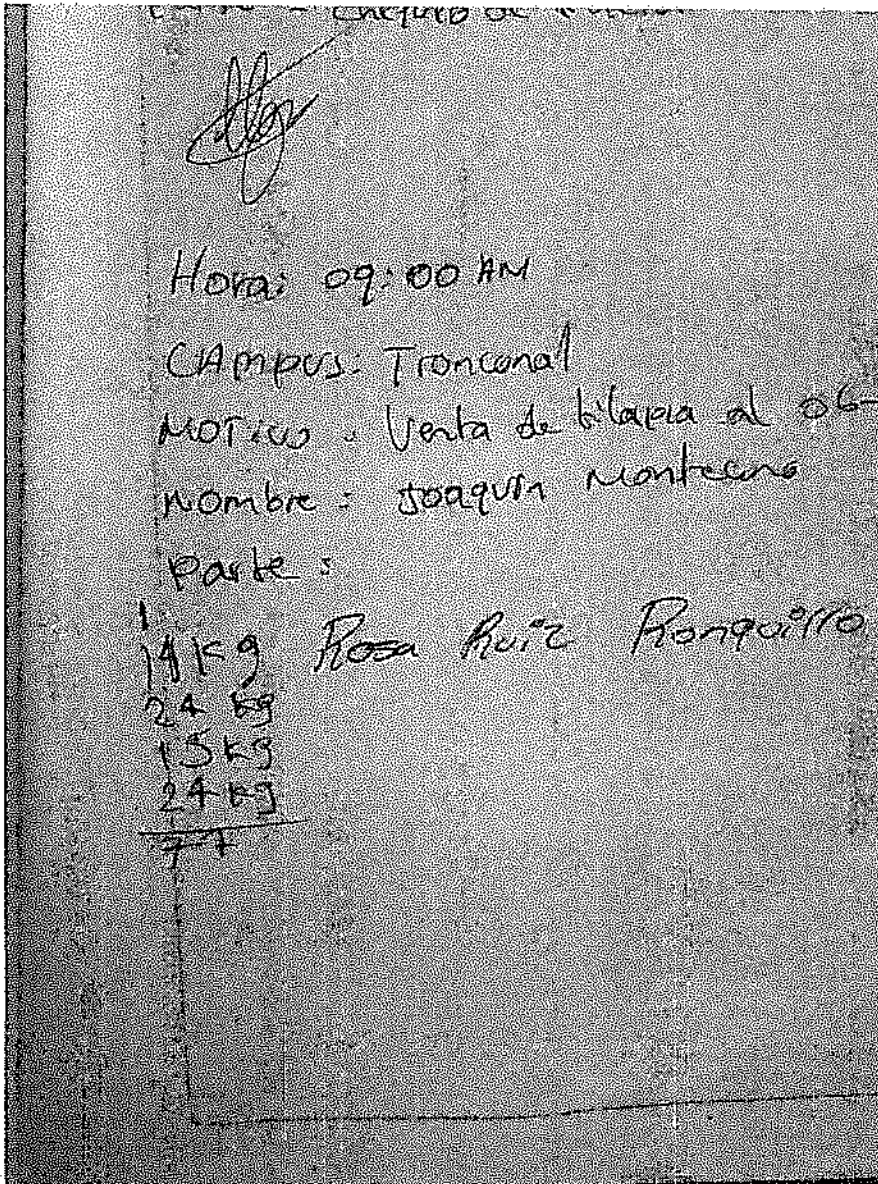 chequeo de
Hora: 09:00 AM
CAMPUS: Tronconal
MOTIVO: Venta de tilapia al 06-
Nombre: Joaquin Montecino
Parte:
1
14 Kg Rosa Ruiz Ronquillo
24 kg
15 kg
24 kg
77